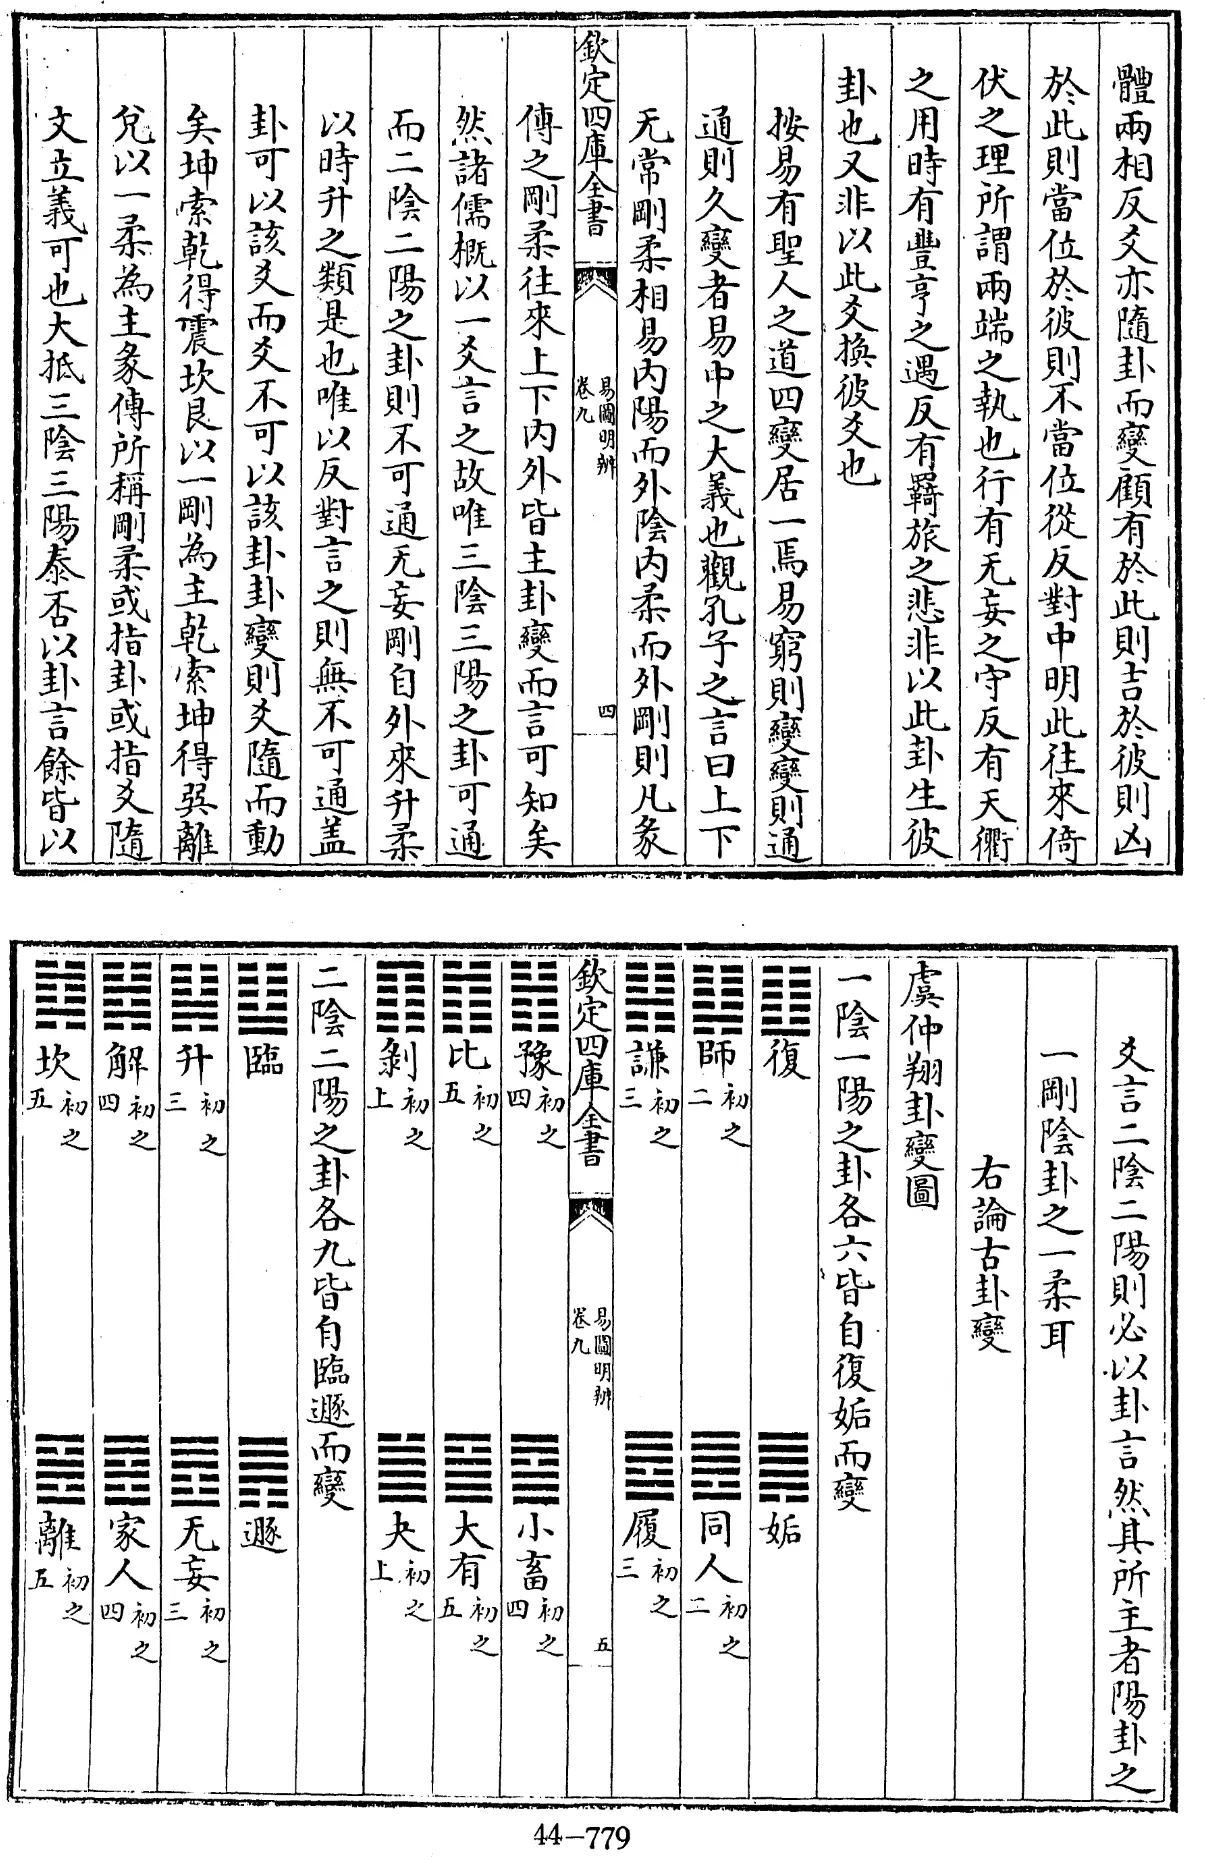 體兩相反爻亦隨卦而變顧有於此則吉於彼則凶
於此則當位於彼則不當位從反對中明此往來倚
伏之理所謂兩端之執也行有无妄之守反有天衢
之用時有豐亨之遇反有羇旅之悲非以此卦生彼
卦也又非以此爻換彼爻也
按易有聖人之道四變居一焉易窮則變變則通
通則久變者易中之大義也觀孔子之言曰上下
无常剛柔相易內陽而外陰內柔而外剛則凡彖
欽定四庫全書
易圖明辨
卷九
四
傳之剛柔往來上下內外皆主卦變而言可知矣
然諸儒概以一爻言之故唯三陰三陽之卦可通
而二陰二陽之卦則不可通无妄剛自外來升柔
以時升之類是也唯以反對言之則無不可通盖
卦可以該爻而爻不可以該卦卦變則爻隨而動
矣坤索乾得震坎艮以一剛為主乾索坤得巽離
兌以一柔為主彖傳所稱剛柔或指卦或指爻隨
文立義可也大抵三陰三陽泰否以卦言餘皆以
爻言二陰二陽則必以卦言然其所主者陽卦之
一剛陰卦之一柔耳
右論古卦變
虞仲翔卦變圖
一陰一陽之卦各六皆自復姤而變
復
姤
師 初之二
同人 初之二
謙 初之三
履 初之三
欽定四庫全書
易圖明辨
卷九
五
豫 初之四
小畜 初之四
比 初之五
大有 初之五
剝 初之上
夬 初之上
二陰二陽之卦各九皆自臨遯而變
臨
遯
升 初之三
无妄 初之三
解 初之四
家人 初之四
坎 初之五
離 初之五
44-779